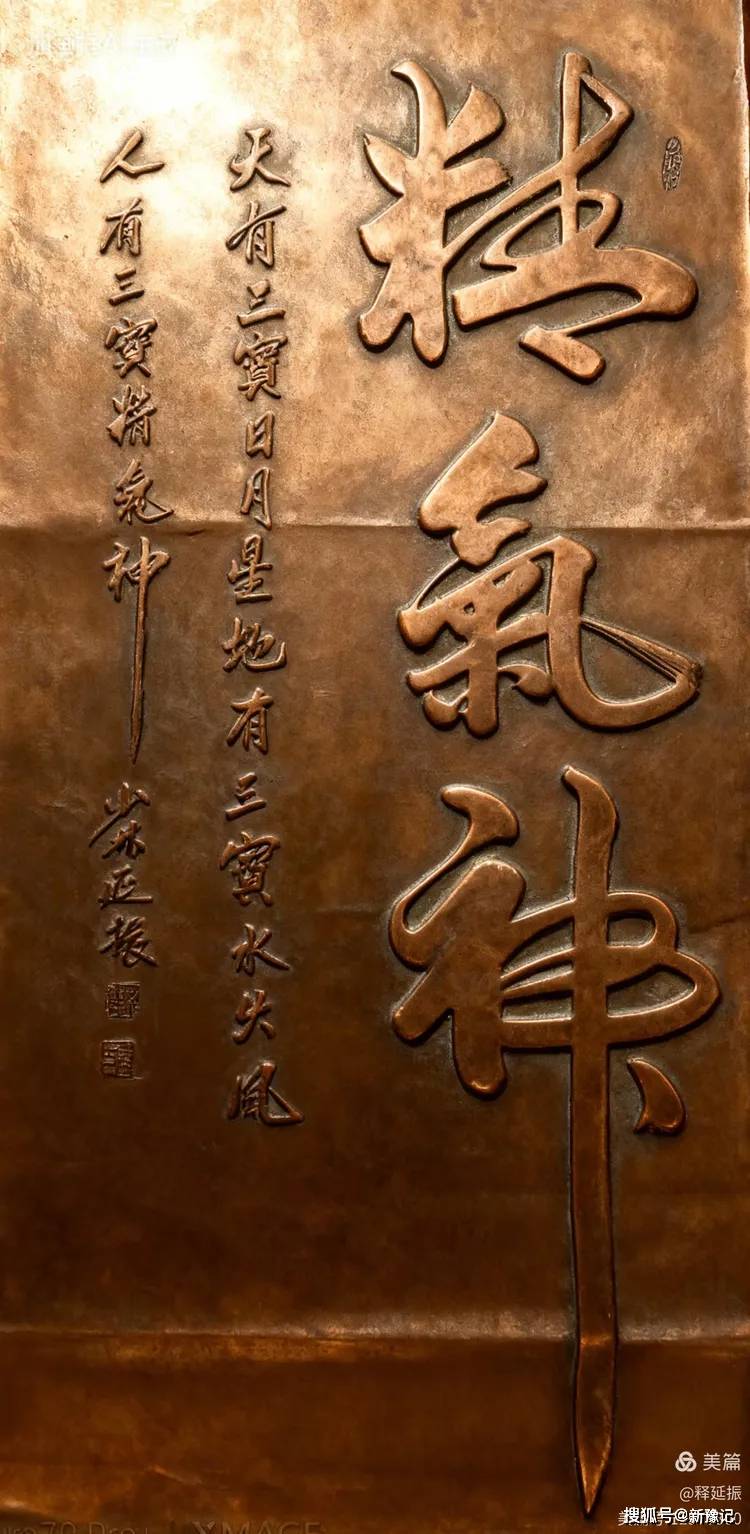 精氣神
天有三寶日月星地有三寶水火風
人有三寶精氣神
少林延振
美篇
@释延振
搜狐号@新豫记